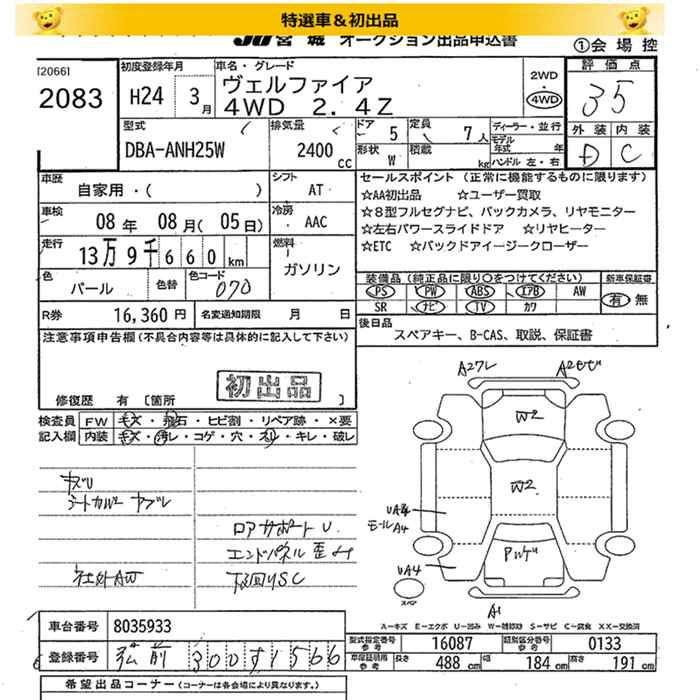 特選車＆初出品
JU宮城 オークション出品申込書
①会場控
[2066]
2083
初度登録年月
H24 3月
車名・グレード
ヴェルファイア
4WD 2.4Z
2WD
・
4WD
評価点
3.5
外装 内装
D C
型式
DBA-ANH25W
排気量
2400 cc
ドア 5
定員 7人
形状 W
積載 kg
ディーラー・並行
モデル年式 年
ハンドル 左・右
車歴
自家用・( )
シフト
AT
車検
08年 08月(05日)
冷房
AAC
走行
13万9千660km
燃料
ガソリン
色
パール
色替
色コード
070
R券 16,360円
名変通知期限 月 日
セールスポイント (正常に機能するものに限ります)
☆AA初出品 ☆ユーザー買取
☆8型フルセグナビ、バックカメラ、リヤモニター
☆左右パワースライドドア ☆リヤヒーター
☆ETC ☆バックドアイージークローザー
装備品(純正品に限り○をつけてください)
新車保証書
PS PW ABS エアB AW
SR ナビ TV カワ
有・無
後日品
スペアキー、B-CAS、取説、保証書
注意事項申告欄(不具合内容等は具体的に記入して下さい)
初出品
修復歴 有 〔箇所 〕
検査員記入欄
FW キズ・飛石・ヒビ割・リペア跡・×要
内装 キズ・汚レ・コゲ・穴・スリ・キレ・破レ
キズU
シートカバー ヤブレ
ロアサポートU
エンドパネル歪
社外AW
下回りSC
A27レ
W2
W2
UA4
モールA4
UA4
A1
スペア
A－キズ E－エクボ U－凹み W－補修跡 S－サビ C－腐食 XX－交換済
車台番号 8035933
登録番号 弘前 300す1566
型式指定番号参考 16087
類別区分番号参考 0133
車庫証明用参考 長さ 488cm 幅 184cm 高さ 191cm
希望出品コーナー(コーナーは各会場により異なります。)